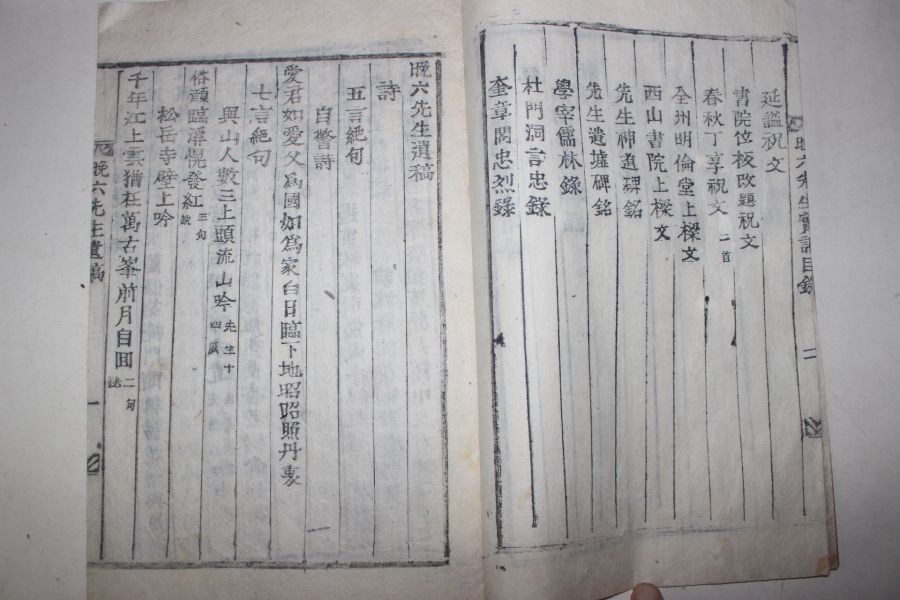 晚六先生實記目錄 二
延諡祝文
書院位板改題祝文
春秋丁享祝文 二首
全州明倫堂上樑文
西山書院上樑文
先生神道碑銘
先生遺墟碑銘
學宰儒林錄
杜門洞言忠錄
奎章閣忠烈錄
晚六先生遺稿
詩
五言絶句
自警詩
愛君如愛父爲國如爲家白日臨下地昭昭照丹衷
七言絶句
與山人數三上頭流山吟 先生十四歲
臨 發紅 三句缺
松岳寺壁上吟
千年江上雲猶在萬古峯前月自回 二句
晚六先生遺稿 一